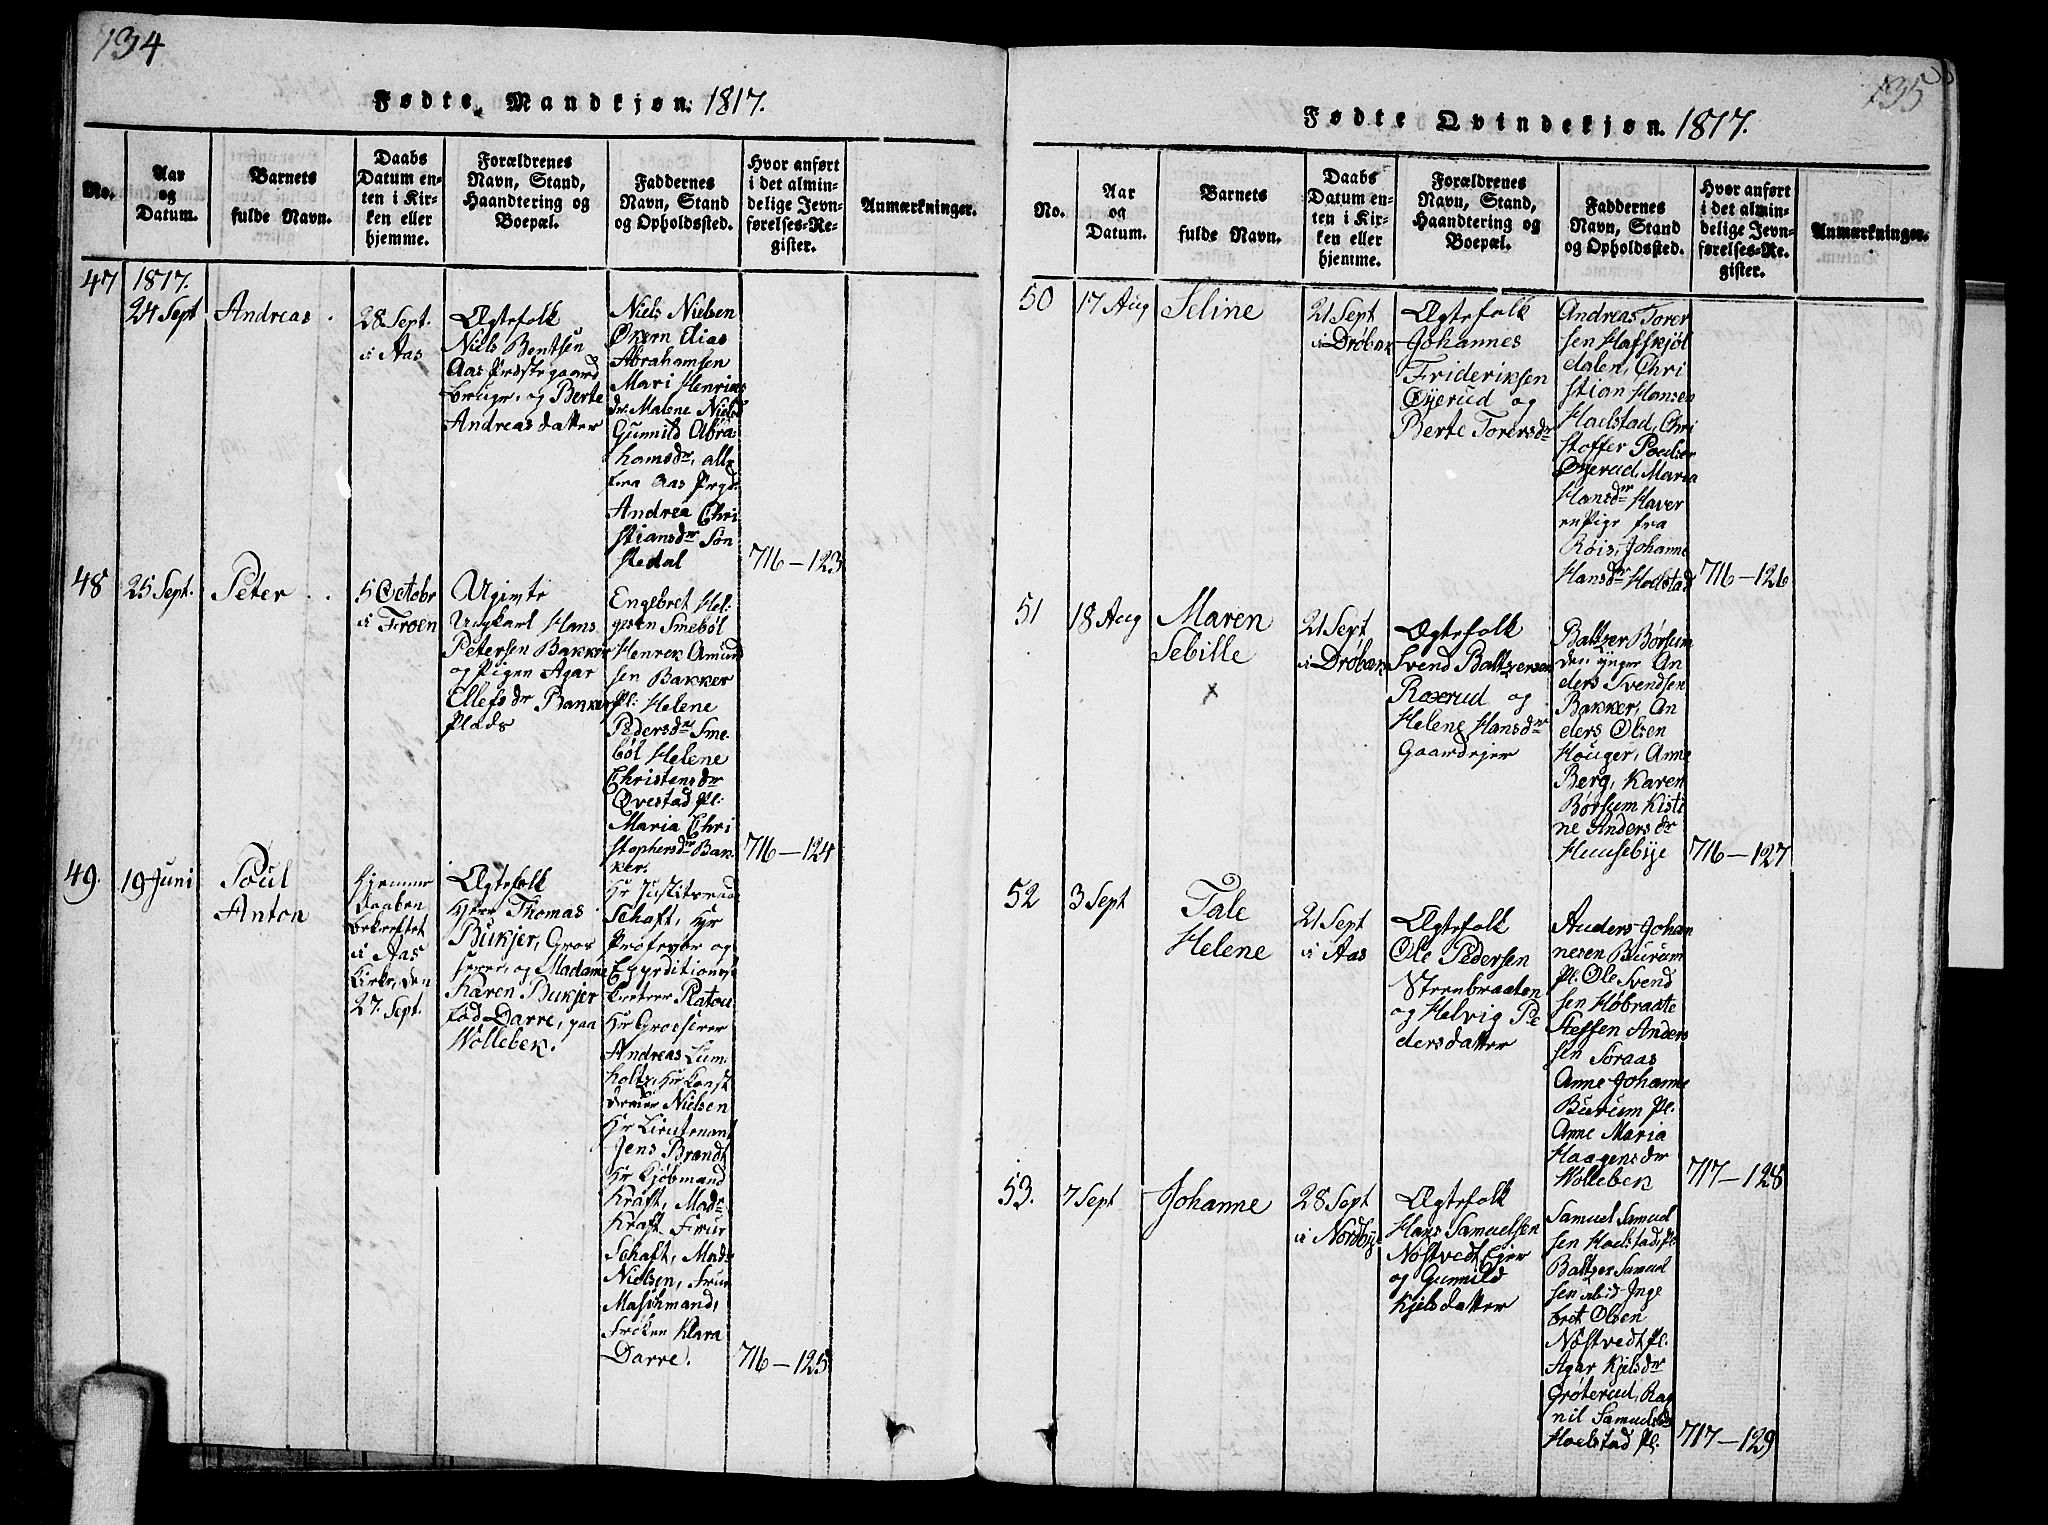 134
Fødte Mandkjøn: 1817.
No.
Aar
og
Datum.
Barnets
fulde Navn.
Daabs
Datum en-
ten i Kir-
ken eller
hjemme.
Forældrenes
Navn, Stand,
Haandtering og
Boepæl.
Faddernes
Navn, Stand
og Opholdssted.
Hvor anført
i det almin-
delige Jevn-
førelses-Re-
gister.
Anmærkninger.
47
1817.
24 Sept
Andreas
28 Sept.
i Aas
Ægtefolk
Niels Bentsen
Aas Præstegaard
bruger, og Berte
Andreasdatter
Niels Nielsen
Økern Elias
Abrahamsen
Mari Henriks
dr. Malene Niels
Gunnild Abra-
hamsdr, alle
fra Aas Prgd.
Andrea Chri
stiansdr Søn
stedal
716-123
48
25 Sept.
Peter
5 Octobr
i Froen
Ugivte
Ungkarl Hans
Petersen Bakker
og Pigen Agar
Ellefsdr Bakker
Plads
Engebret Hel-
gesen Smebøl
Henrek Amund
sen Bakker
Pl: Helene
Pedersdr Sme-
bøl Helene
Christensdr
Øvestad Pl:
Maria Chri
stophersdr Bak-
ker.
716-124
49.
19 Juni
Poul
Anton
Hjemme
daaben
bekreftet
i Aas
Kirke, den
27. Sept.
Ægtefolk
Herr Thomas
Bukjer, Gros
serer, og Madame
Karen Bukjer
fød Darre, paa
Wollebek.
Hr Justitsraad
Schaft, Hr
Profesor og
Expeditions
Secreterer Platou
Hr Grosserer
Andreas Lum-
holtz, Hr Const
drager Nielsen
Hr Lieutenant
Jens Brandt
Hr Kjøbmand
Kraft, Madr
Kraft Frur
Schaft, Mads
Nielsen, Frue
Maschmand,
Frøken Klara
Darre.
716-125
135
Fødte Qvindekjøn. 1817.
No.
Aar
og
Datum.
Barnets
fulde Navn.
Daabs
Datum en-
ten i Kir-
ken eller
hjemme.
Forældrenes
Navn, Stand,
Haandtering og
Boepæl.
Faddernes
Navn, Stand
og Opholdssted.
Hvor anført
i det almin-
delige Jevn-
førelses-Re-
gister.
Anmærkninger.
50
17 Aug
Seline
21 Sept
i Drøbak
Ægtefolk
Johannes
Frideriksen
Øyerud og
Berte Torersdr
Andreas Torer
sen Hafskjøl
dalen, Chri
stian Hansen
Hoelstad, Chri
stoffer Poulsen
Øyerud, Maria
Hansdr Haver
en Pige fra
Røis, Johanne
Hansdr Hoelstad
716-126
51
18 Aug
Maren
Sebille
x
21 Sept
i Drøbak
Ægtefolk
Svend Baltzersen
Roxrud og
Helene Hansdr
Gaardejer
Baltzer Børsum
den ynger An
ders Svendsen
Bakker, An
ders Olsen
Houger, Anne
Berg, Karen
Børsum Kisti
ne Andersdr
Huusebye
716-127
52
3 Sept
Tale
Helene
21 Sept
i Aas
Ægtefolk
Ole Pedersen
Steenbraaten
og Helvig Pe
dersdatter
Anders Johan
nesen Burum
Pl. Ole Svend
sen Høbraate
Steffen Anders
sen Soraas
Anne Johanne
Burum Pl.
Anne Maria
Haagensdr
Wollebek
717-128
53.
7 Sept
Johanne
28 Sept
i Nordbye
Ægtefolk
Hans Samuelsen
Nøstvedt Ejer
og Gunnild
Kjelsdatter
Samuel Samuel
sen Hoelstad, Pl.
Baltzer Samuel
sen ibid Inge
bret Olsen
Nøstvedt Pl.
Agar Kjelsdr
Grøterud, Rag
nil Samuelsdr
Hoelstad Pl.
717-129